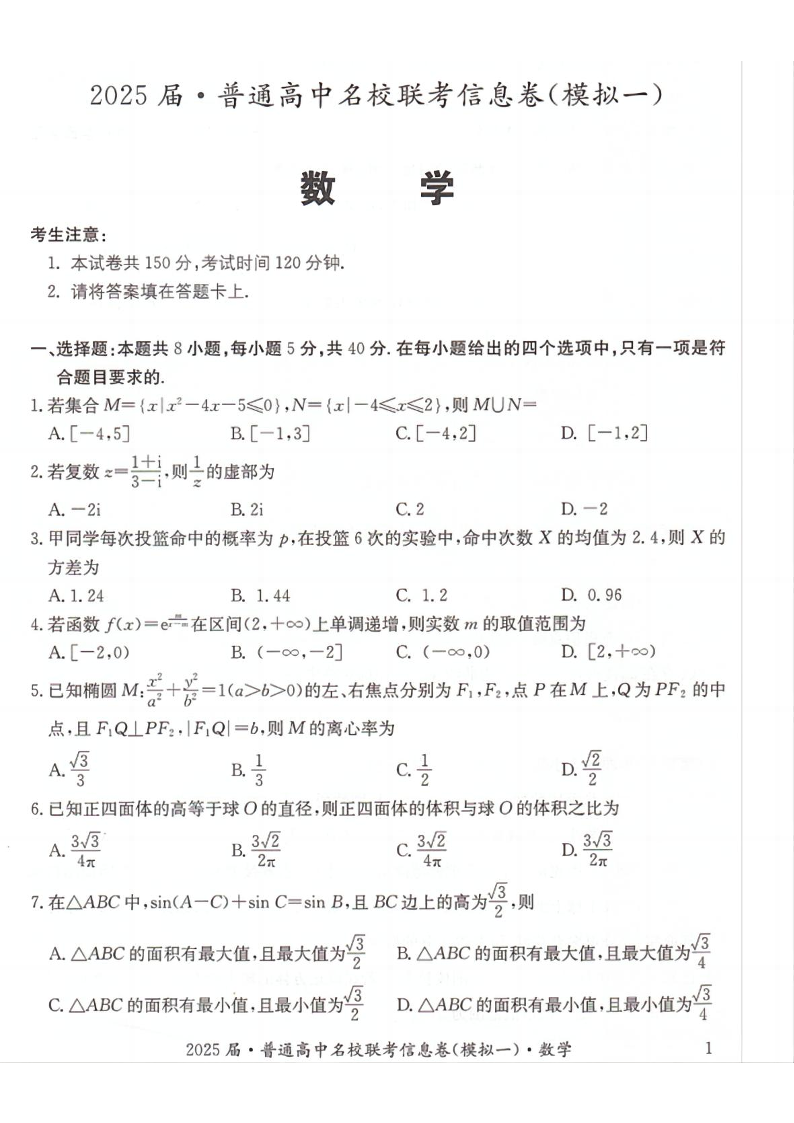 2025 届·普通高中名校联考信息卷(模拟一)
数 学
考生注意:
1. 本试卷共 150 分,考试时间 120 分钟.
2. 请将答案填在答题卡上.
一、选择题:本题共 8 小题,每小题 5 分,共 40 分. 在每小题给出的四个选项中,只有一项是符
合题目要求的.
1. 若集合 M={x|x²-4x-5≤0},N={x|-4≤x≤2},则 M∪N=
A. [-4,5] B. [-1,3] C. [-4,2] D. [-1,2]
2. 若复数 z=\frac{1+i}{3-i},则\frac{1}{z}的虚部为
A. -2i B. 2i C. 2 D. -2
3. 甲同学每次投篮命中的概率为 p,在投篮 6 次的实验中,命中次数 X 的均值为 2.4,则 X 的
方差为
A. 1.24 B. 1.44 C. 1.2 D. 0.96
4. 若函数 f(x)=e^{\frac{m}{x-m}}在区间(2,+∞)上单调递增,则实数 m 的取值范围为
A. [-2,0) B. (-∞,-2] C. (-∞,0) D. [2,+∞)
5. 已知椭圆 M:\frac{x²}{a²}+\frac{y²}{b²}=1(a>b>0)的左、右焦点分别为 F₁,F₂,点 P 在 M 上,Q 为 PF₂ 的中
点,且 F₁Q⊥PF₂,|F₁Q|=b,则 M 的离心率为
A. \frac{√3}{3} B. \frac{1}{3} C. \frac{1}{2} D. \frac{√2}{2}
6. 已知正四面体的高等于球 O 的直径,则正四面体的体积与球 O 的体积之比为
A. \frac{3√3}{4π} B. \frac{3√2}{2π} C. \frac{3√2}{4π} D. \frac{3√3}{2π}
7. 在△ABC 中,sin(A-C)+sin C=sin B,且 BC 边上的高为\frac{√3}{2},则
A. △ABC 的面积有最大值,且最大值为\frac{√3}{2} B. △ABC 的面积有最大值,且最大值为\frac{√3}{4}
C. △ABC 的面积有最小值,且最小值为\frac{√3}{2} D. △ABC 的面积有最小值,且最小值为\frac{√3}{4}
2025 届·普通高中名校联考信息卷(模拟一)·数学 1